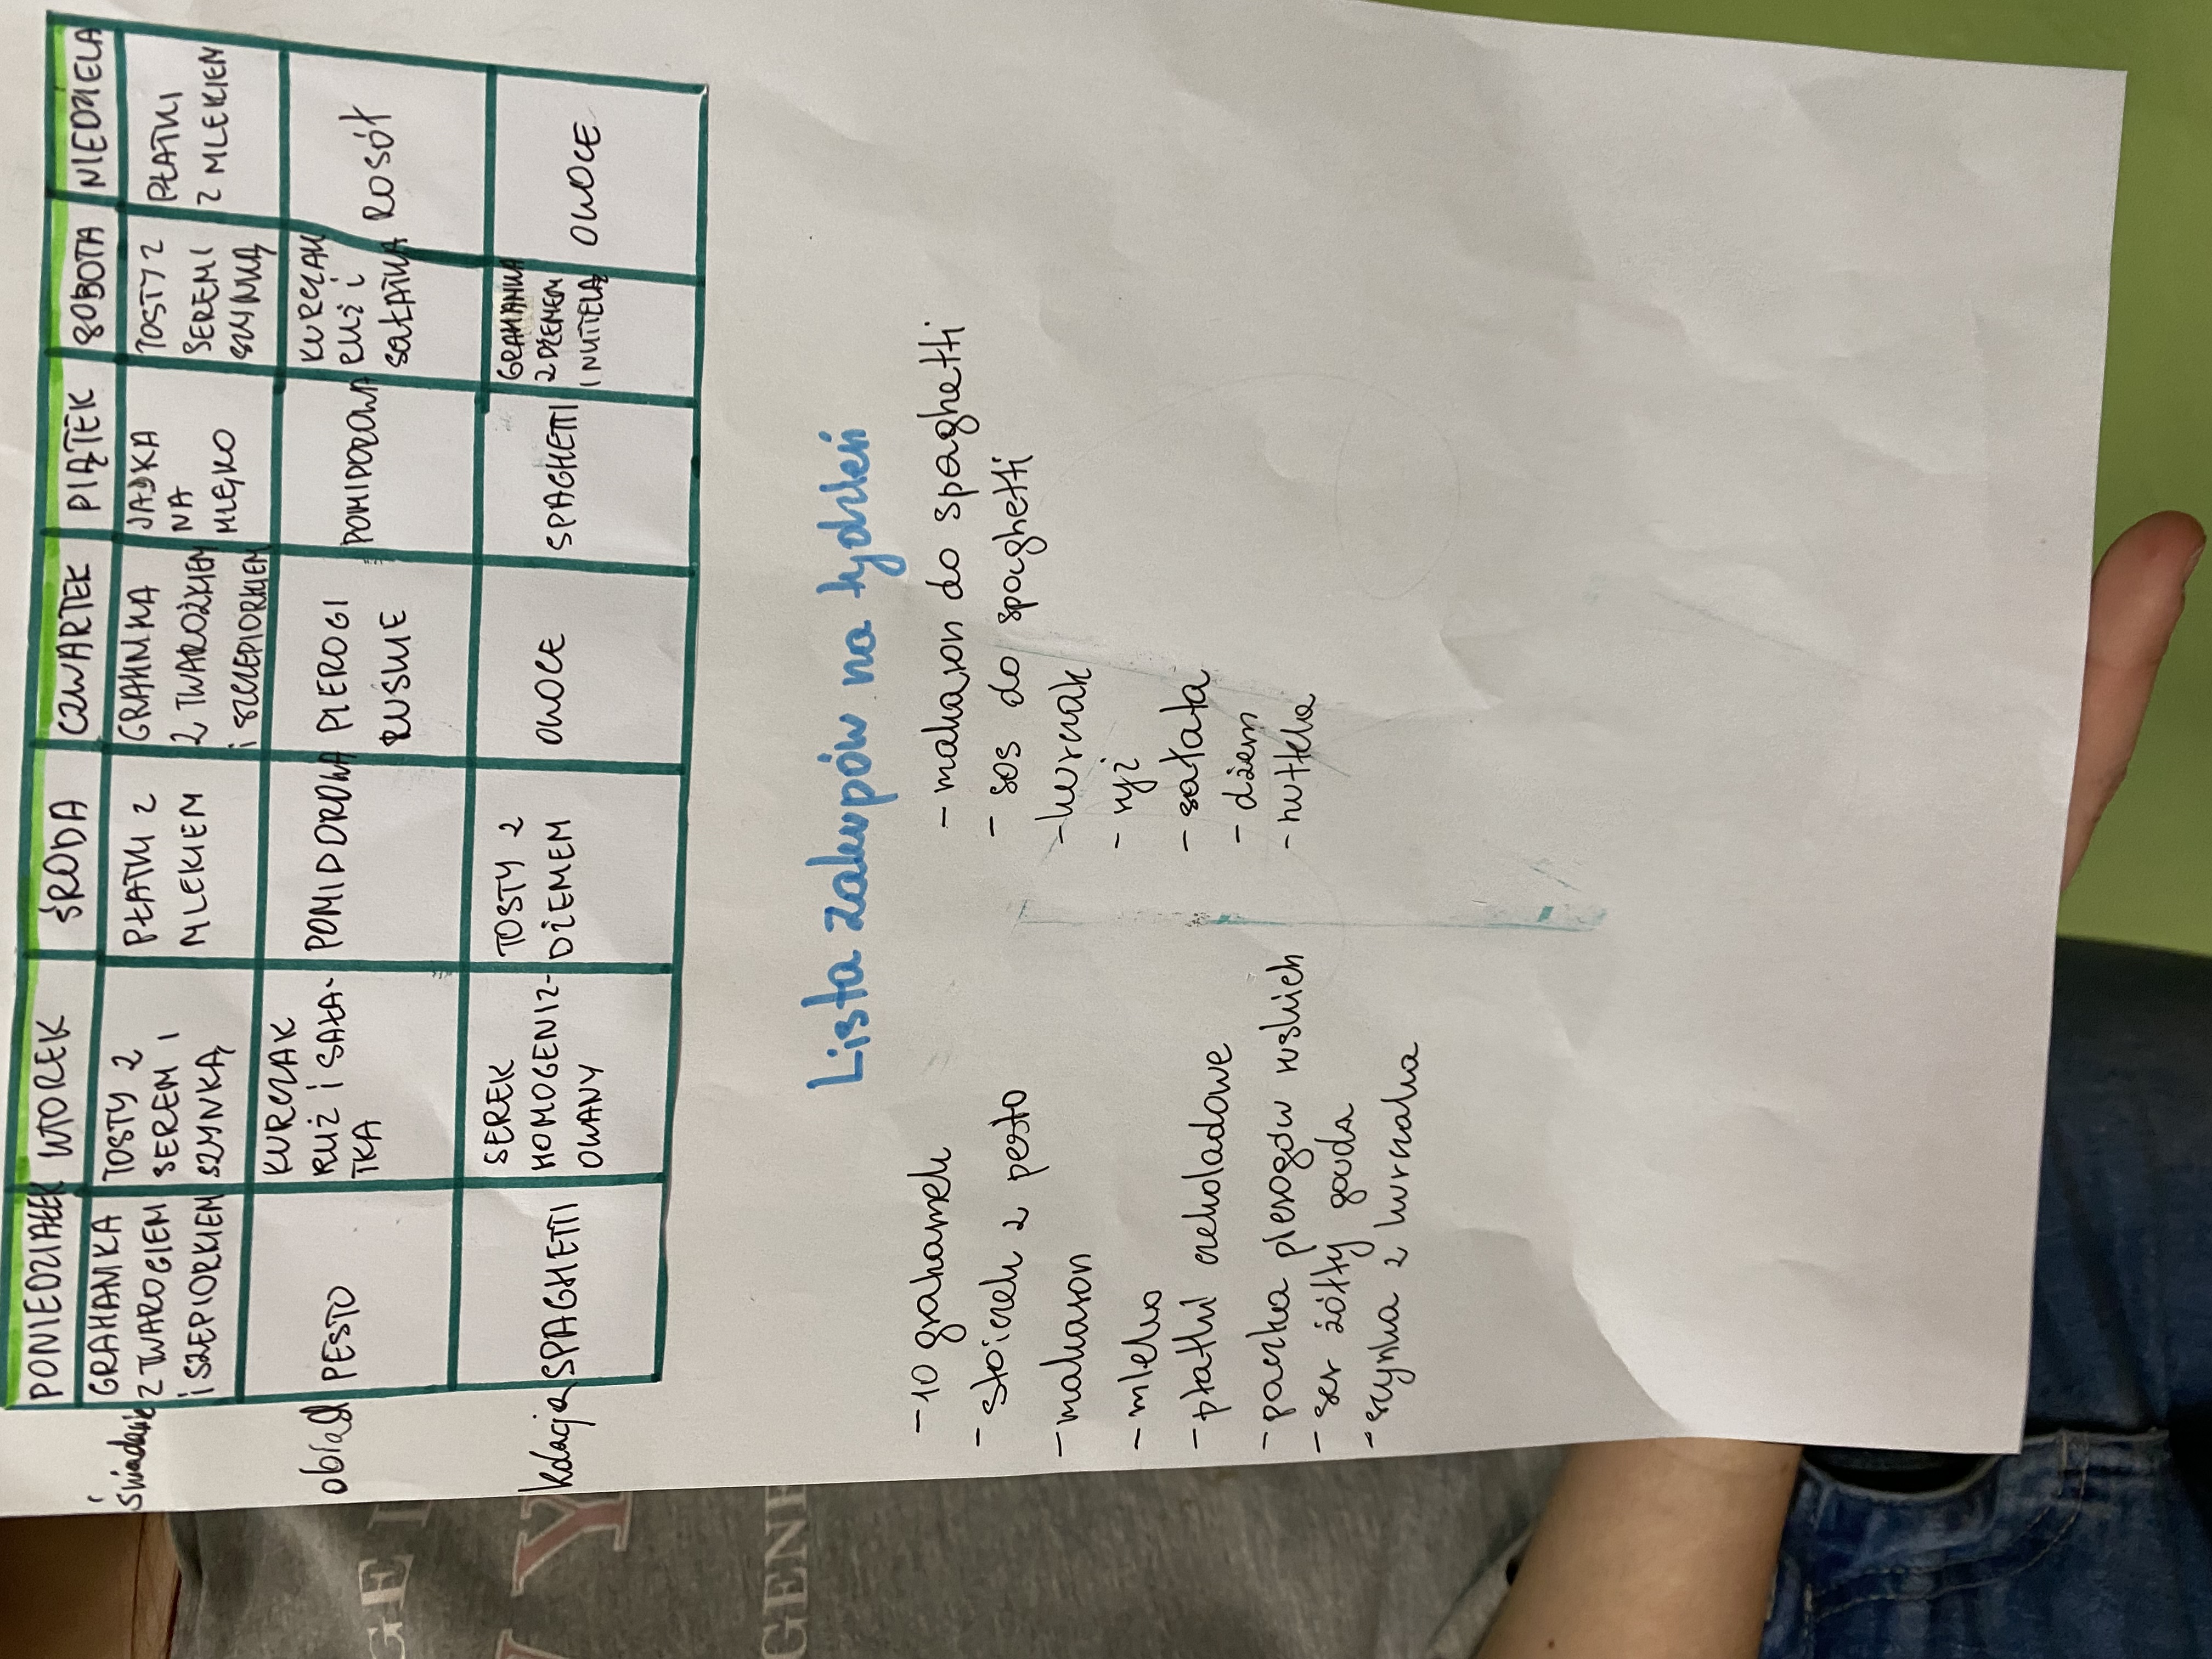 PONIEDZIAŁEK WTOREK ŚRODA CZWARTEK PIĄTEK SOBOTA NIEDZIELA
śniadanie
GRAHAMKA
Z TWAROGIEM
i SZEPIORKIEM
TOSTY Z
SEREM I
SZYNKĄ
PŁATKI Z
MLEKIEM
GRAHMKA
Z TWAROŻKIEM
i SZCZEPIORKIEM
JAJKA
NA
MIĘKO
TOSTY Z
SEREM I
SZYNKĄ
PŁATKI
Z MLEKIEM
obiad
PESTO
KURCZAK
RYŻ I SAŁA-
TKA
POMIDOROWA
PIEROGI
RUSKIE
POMIDOROWA
KURCZAK
RYŻ i
SAŁATKA
ROSÓŁ
Kolacja
SPAGHETTI
SEREK
HOMOGENIZ-
OWANY
TOSTY Z
DŻEMEM
OWOCE
SPAGHETTI
GRAHAMKA
Z DŻEMEM
I NUTELĄ
OWOCE
Lista zakupów na tydzień
- 10 grahamek
- słoiczek z pesto
- makaron
- mleko
- płatki czekoladowe
- paczka pierogów ruskich
- ser żółty gouda
- szynka z kurczaka
- makaron do spaghetti
- sos do spaghetti
- kurczak
- ryż
- sałata
- dżem
- nutella
GE
Y
GENE